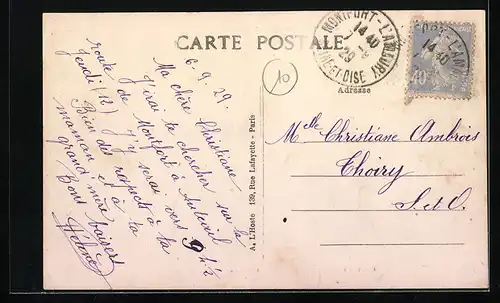 CARTE POSTALE
MONTFORT-L'AMAURY
14 40
SEINE-ET-OISE
14 40
40
10
Adresse
6.9.29.
Ma chère Christiane
J'irai te chercher sur la
route de Montfort à Auteuil
Jeudi (12) J'y serai vers 9 h ½
Bien des respects à ta
maman et à ta
grand'mère
Bons baisers
Hélène
A. L'Hoste 139, Rue Lafayette - Paris
Melle Christiane Ambrois
Thoiry
S. et O.